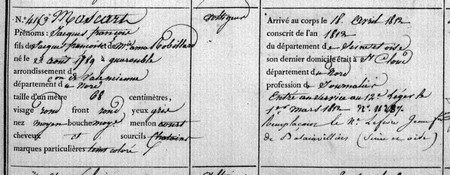 N.° 4169 Mascart
Prénoms : Jacques françois
fils de Jacques francois et de anne Robillard
né le 23 août 1789 à quarouble
arrondissement d
con de Valencienne
département d u Nord
taille d'un mètre 68 centimètres,
visage rond front rond yeux gris
nez moyen bouche moye menton court
cheveux et sourcils Chatains
marques particulières teint coloré
voltigeur
Arrivé au corps le 18 Avril 1812
conscrit de l'an 1812
du département de Seine et oise
son dernier domicile était à St Cloud
département du Nord
profession de Journalier
Entré au service au 12e léger le
1er mars 1812 N.° 11887
Remplaçant le Sr Lefevre Jean
de Balainvilliers (Seine et oise)